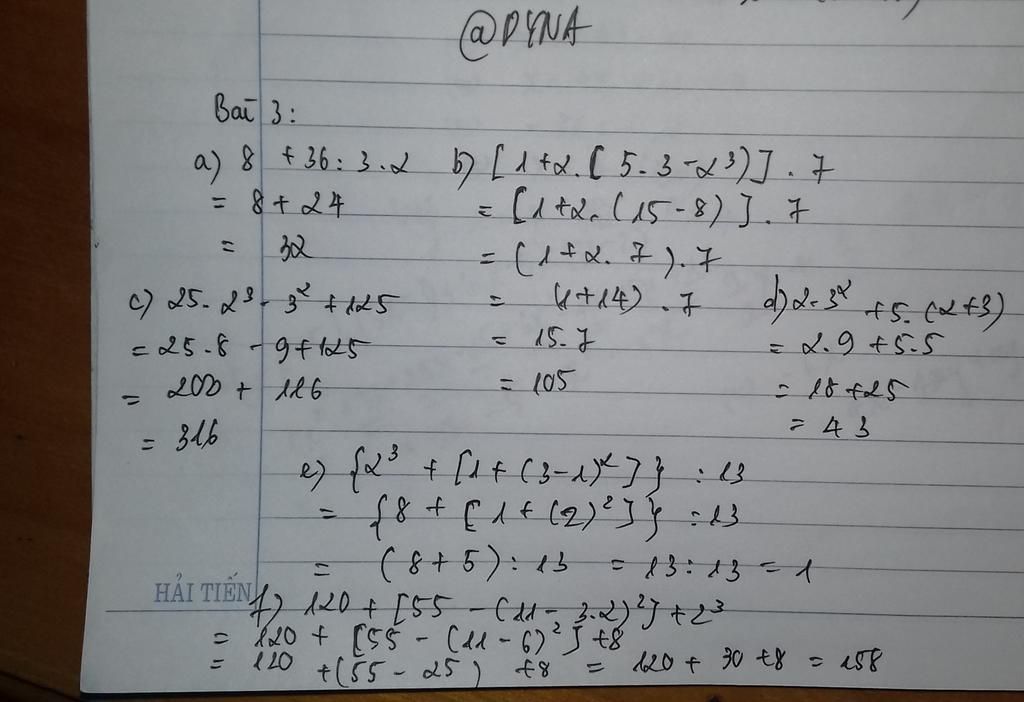 @DYNA
Bài 3:
a) 8 + 36 : 3 . 2
= 8 + 24
= 32
b) [1 + 2 . [ 5 . 3 - 2³)] . 7
= [1 + 2 . (15 - 8) ] . 7
= (1 + 2 . 7 ) . 7
= (1 + 14) . 7
= 15 . 7
= 105
c) 25 . 2³ - 3² + 125
= 25 . 8 - 9 + 125
= 200 + 116
= 316
d) 2 . 3² + 5 . (2 + 3)
= 2 . 9 + 5 . 5
= 18 + 25
= 43
e) {2³ + [1 + (3 - 1)²]} : 13
= {8 + [1 + (2)²]} : 13
= (8 + 5) : 13 = 13 : 13 = 1
HẢI TIẾN
f) 120 + [55 - (11 - 3.2)²] + 2³
= 120 + [55 - (11 - 6)²] + 8
= 120 + (55 - 25) + 8 = 120 + 30 + 8 = 158